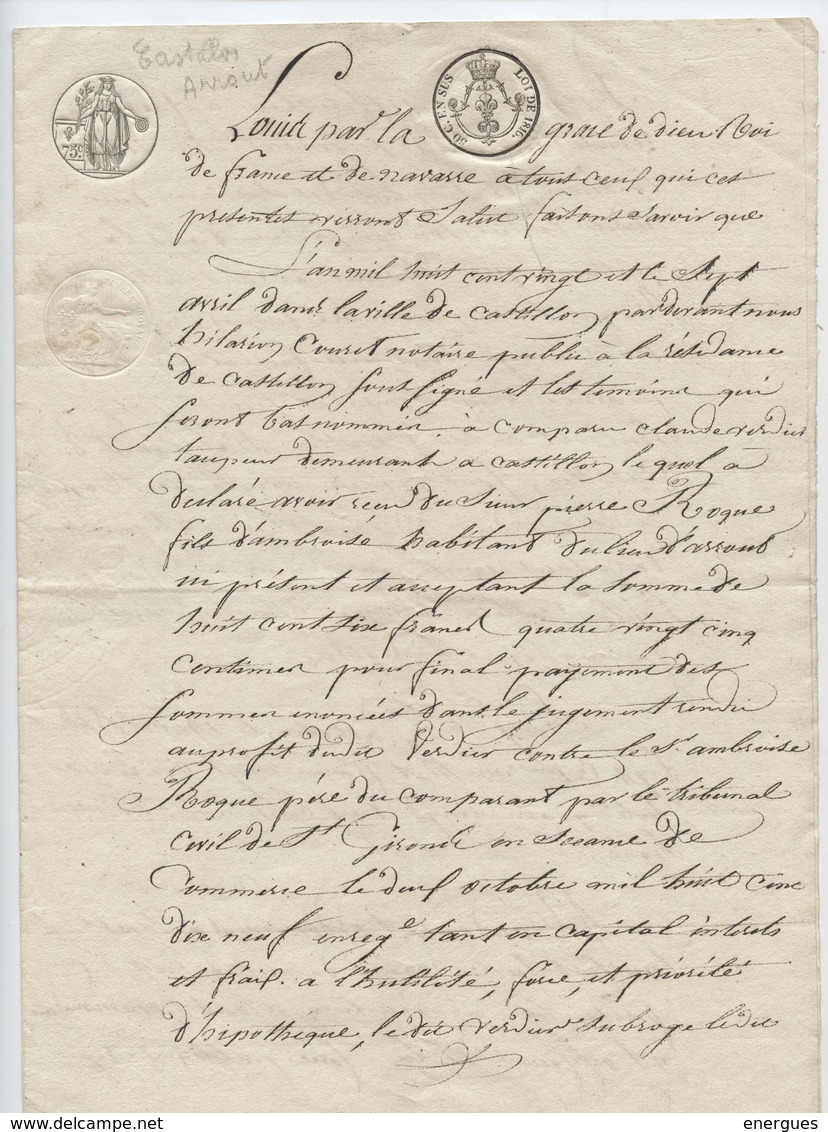 Castillon
Arrout
75c.
50 C. EN SUS
LOI DE 1816.
Louis par la grace de dieu Roi
de france et de navarre a tous ceux qui ces
presentes verront Salut faisons savoir que
L'an mil huit cent vingt et le Sept
avril dans la ville de Castillon pardevant nous
hilarion Couret notaire public à la résidance
de castillon soussigné et les temoins qui
seront bas nommés, à comparu claude verdier
taupeur demeurant a castillon lequel à
déclaré avoir reçu du Sieur pierre Roque
fils d'ambroise habitant du lieu d'arrout
ici présent et acceptant la somme de
huit cent six francs quatre vingt cinq
centimes pour final payement des
sommes enoncées dans le jugement rendu
au profit dudit Verdier contre le Sr. ambroise
Roque père du comparant par le tribunal
civil de St. Girons en sceance de
Commerce le deux octobre mil huit cent
dix neuf enregé tant en capital interets
et frais. a l'hutilité, force, et priorité
d'hipothèque, le dit verdier subroge ledit
energues